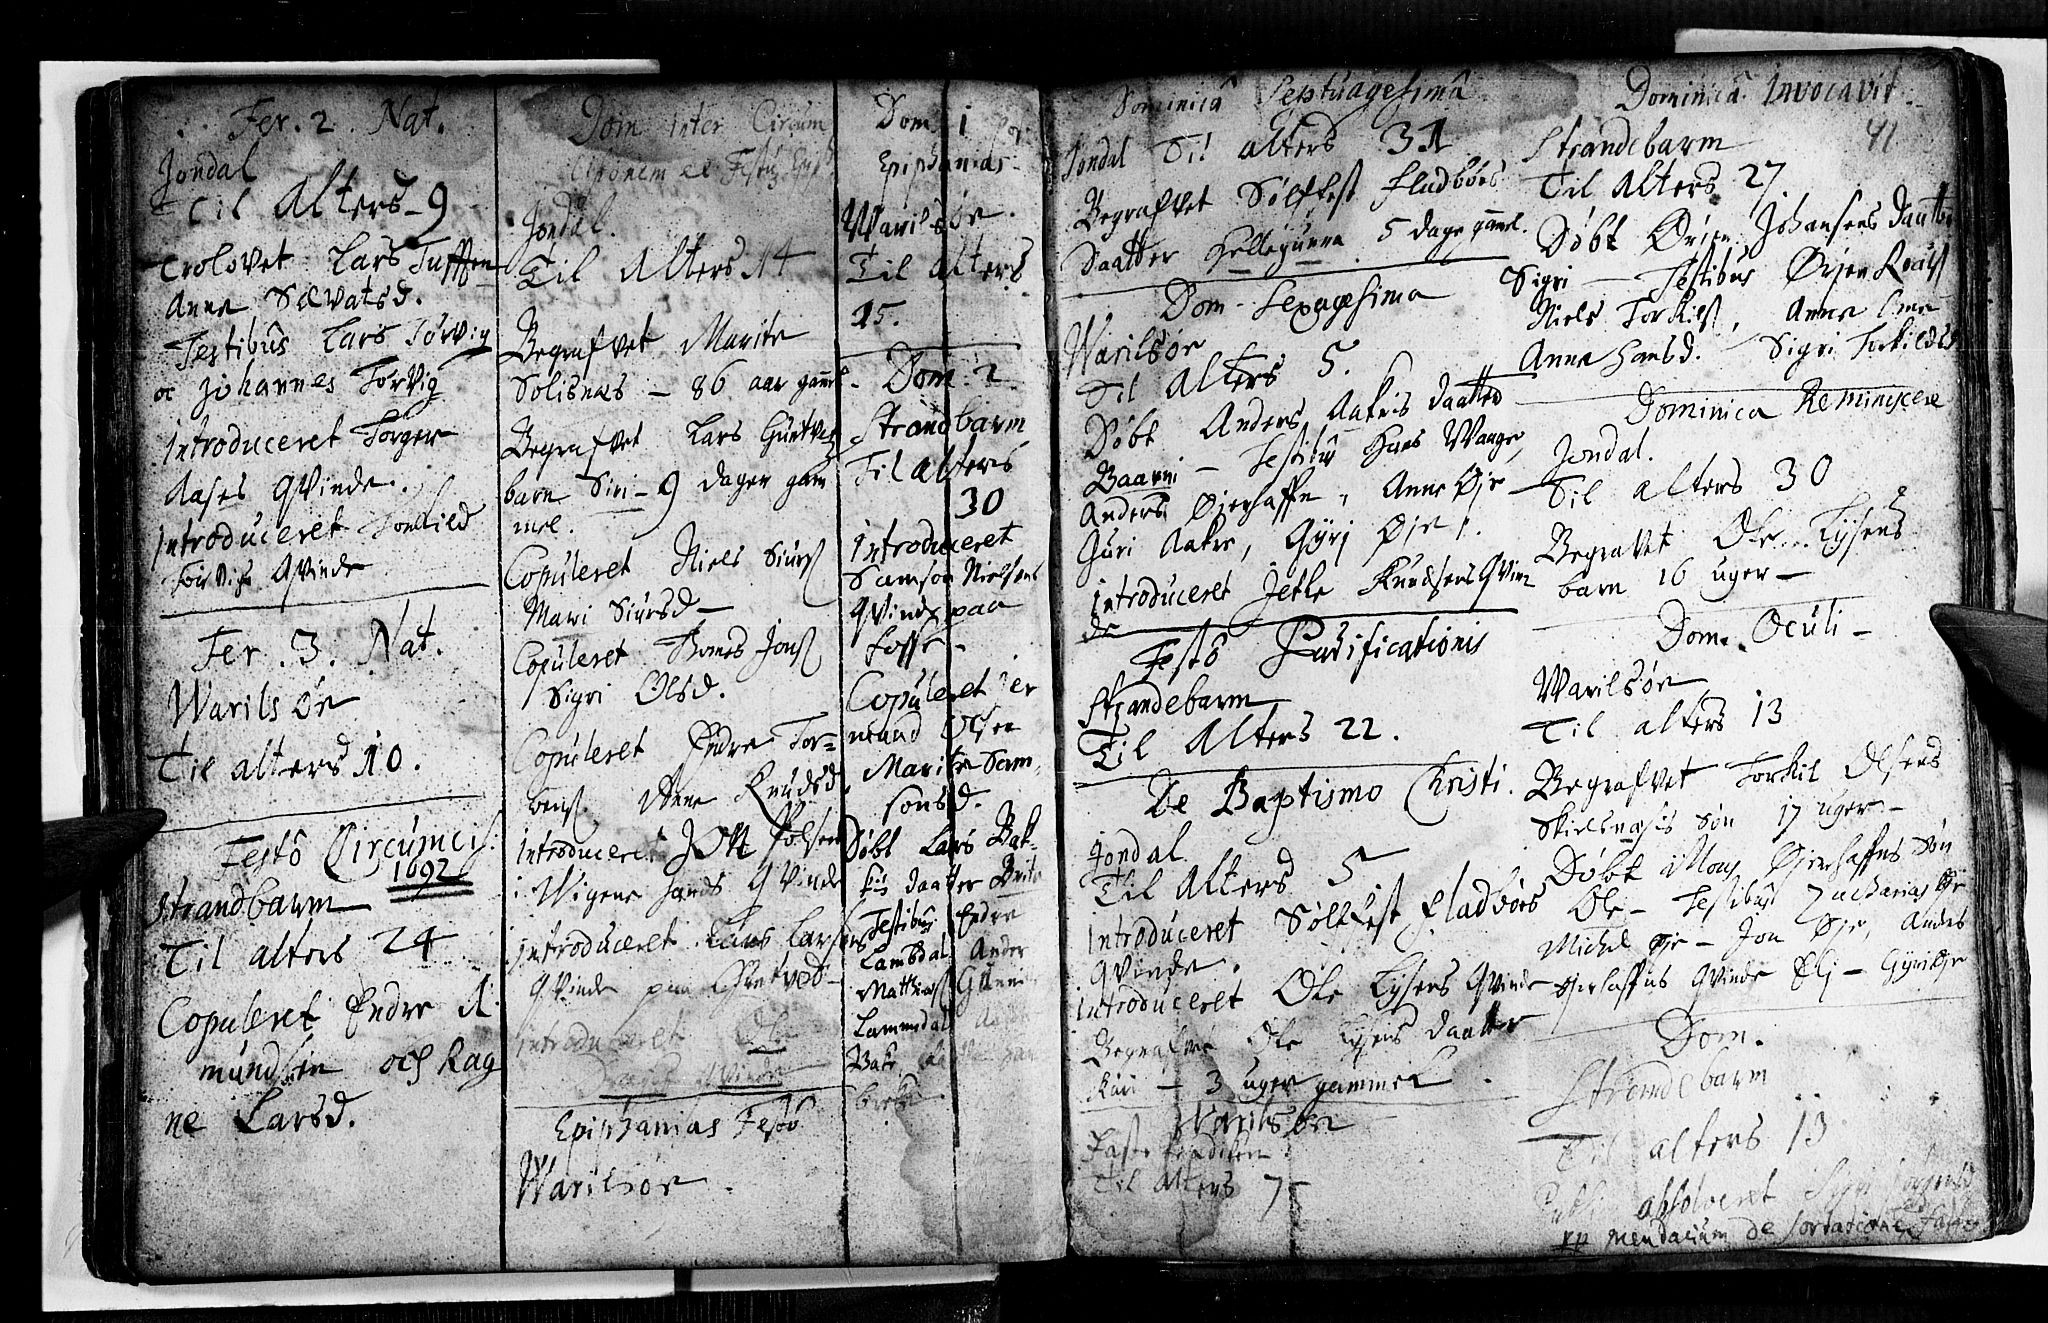 Fer. 2. Nat.
Jondal
Til Alters - 9
Trolovet Lars
Anne Selvatsd.
Testibus Lars Torvig
oc Johannes Torvig
Introduceret Torger
Aases Qvinde.
Introduceret
Torvigs Qvinde
Fer. 3. Nat.
Warilsør
Til alters 10.
Festo Circumcis:
1692
Strandbarm
Til alters 24
Copuleret Endre A
mundsen och Rag
ne Larsd.
Dom inter Circum
cisionem et Festum
Jondal.
Til Alters 14
Begrafvet Marite
Solisnæs - 86 aar gamel
Begrafvet Lars
barn Siri - 9 dager gam
mel.
Copuleret Niels Siurs
Mari Siursd -
Copuleret Thomes Jons
Sigri Olsd.
Copuleret Endre Tor-
bens. Anne Knudsd.
Introduceret Jon Polsens
i Wigene hands Qvinde
Introduceret Lars Larsens
Qvinde paa
Introduceret Ole
Qvinde
Epiphanias Festo
Warilsør.
Dom 1 post
Epiphanias
Warilsør.
Til Alters
15.
Dom. 2
Strandbarm
Til alters
30
Introduceret
Samson Nielsens
Qvinde paa
Fosse -
Copuleret Her
mand Olsen
Marite Sam-
sonsd.
Døbt Lars Bak-
kis daatter Brite
Testibus Endre
Lambdal, Ander
Mathias
Lammdal
Bake
Dominica Septuagesima
Jondal Til alters 31
Begrafvet Sølfest Fladbøes
Daatter Hellegunna 5 dage gamel.
Dom - Sexagesima
Warilsør
Til Alters 5.
Døbt Anders Aakris daatter
Baarni - Testibus Hans Waage,
Anders Øierhaffn, Anne Øje -
Guri Aakre, Gyri Øje.
Introduceret Jetle Knudsens Qvin
de
Festo Purificationis
Strandebarm
Til Alters 22.
De Baptismo Christi.
Jondal
Til Alters 5
Introduceret Sølfest Fladbøes
Qvinde.
Introduceret Ole Tysens Qvinde
Begrafvet Ole Tysens daatter
Kari - 3 uger gammel
Warilsøer
Faste
Til Alters 7 -
Dominica Invocavit
41
Strandebarm
Til Alters 27.
Døbt Ørjen Johansens daatter
Sigri - Testibus Ørjen
Niels Torkils, Anne
Anna Hansd. Sigri Torkildsd
Dominica Reminiscere
Jondal.
Til alters 30
Begravet Ole Tysens
barn 16 uger -
Dom. Oculi -
Warilsør
Til alters 13
Begrafvet Torkil Olsens
Skielsnæsis søn 17 uger -
Døbt Mons Øierhaffns søn
Ole - Testibus Zacharias Øje
Michel Øje - Jon Øje, Anders
Øierhaffns Qvinde Elj - Gyri Øje
Dom.
Strandebarm
Til alters 13
absolveret Sigri
pp mendacium de